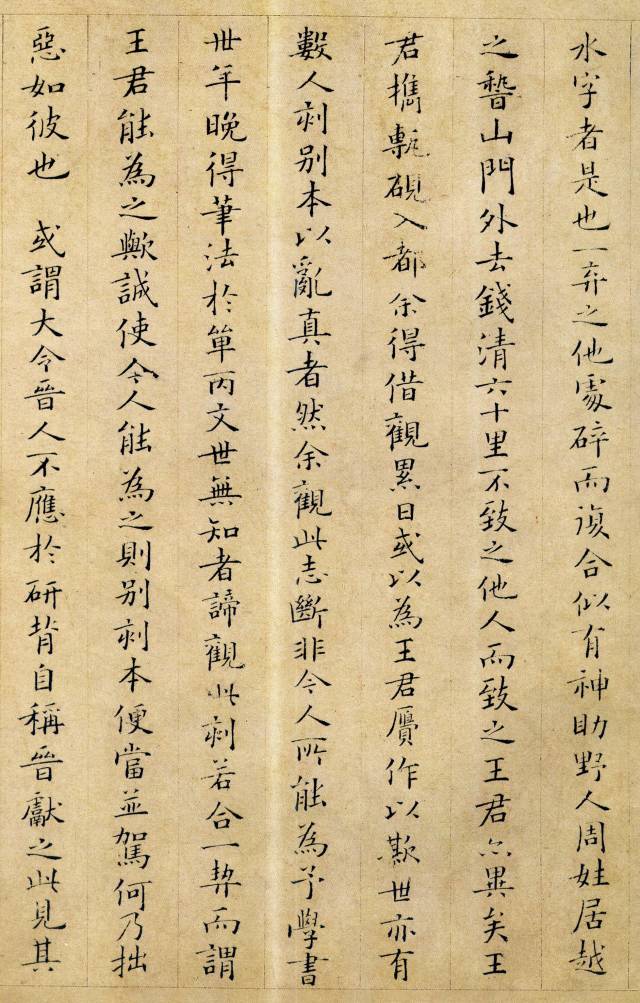 水字者是也一弃之他處碎而復合似有神助野人周姓居越
之稽山門外去錢清六十里不致之他人而致之王君亦異矣王
君攜甎硯入都余得借觀累日或以為王君贋作以欺世亦有
數人刻别本以亂真者然余觀此志斷非今人所能為予學書
卅年晚得筆法於單丙文世無知者諦觀此刻若合一契而謂
王君能為之歟誠使今人能為之則别刻本便當並駕何乃拙
惡如彼也 或謂大令晉人不應於研背自稱晉獻之此見其